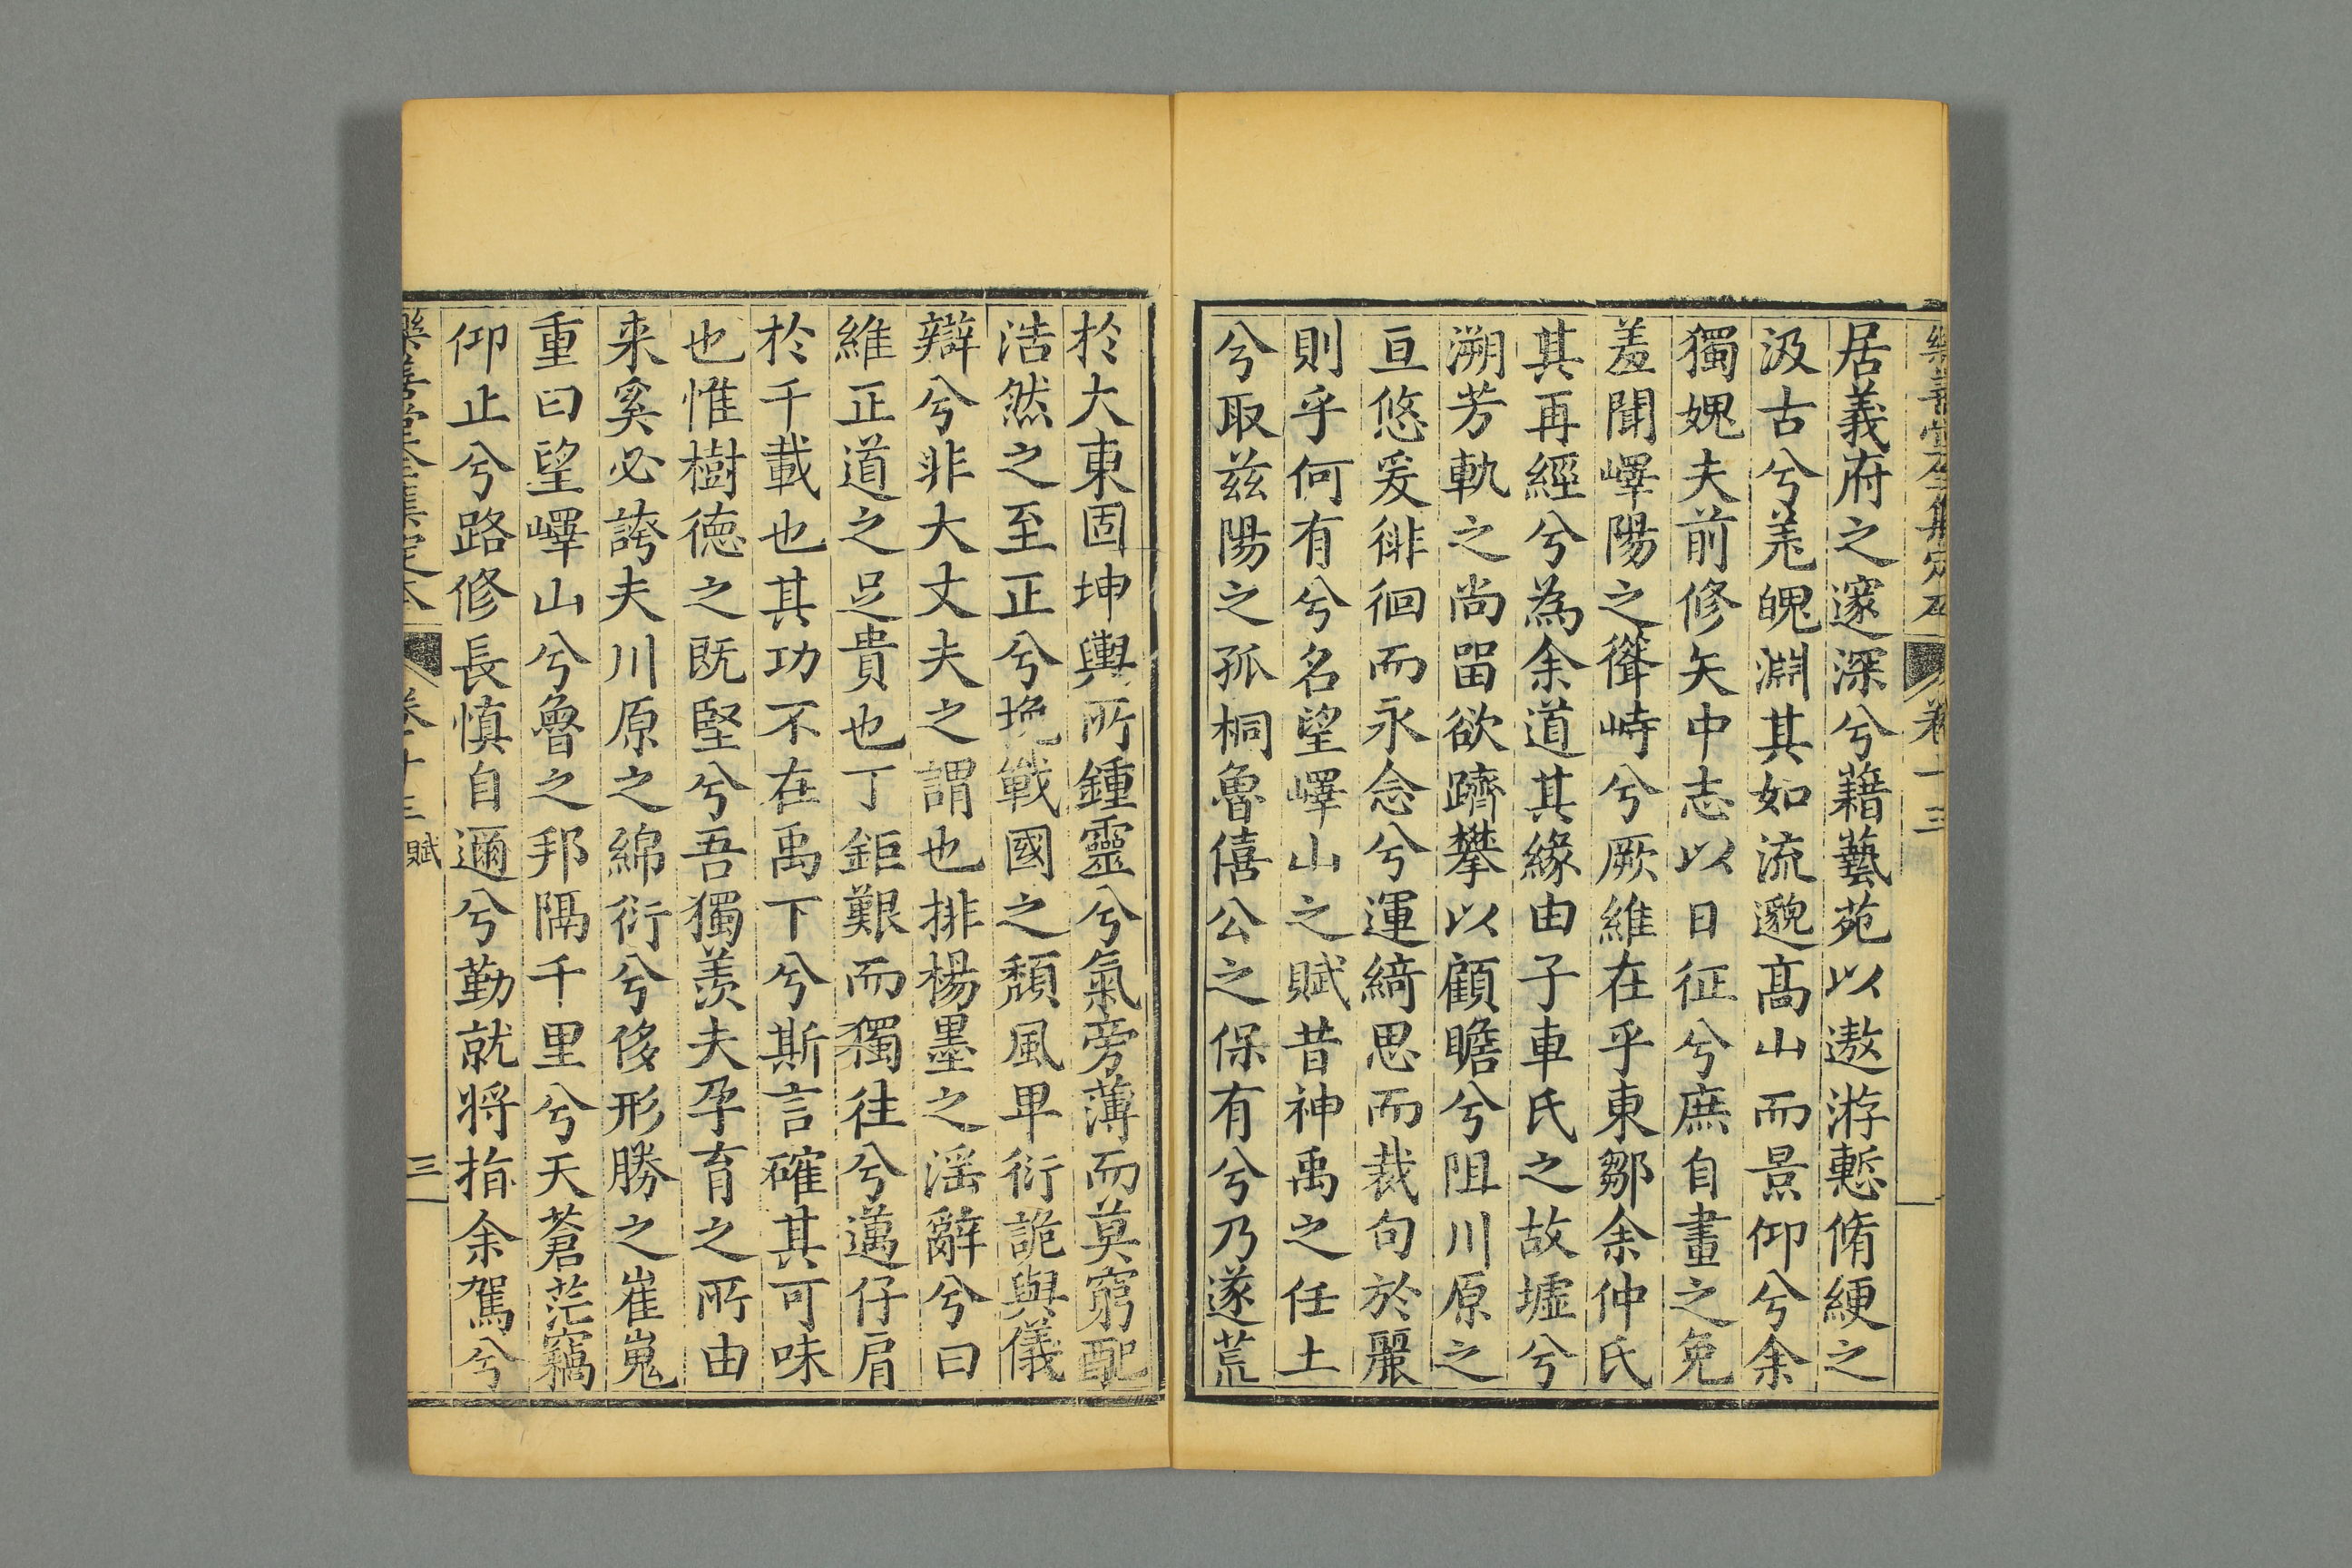 樂善堂全集定本 卷十三
居義府之邃深兮藉藝苑以遨游慙脩綆之
汲古兮羌䰟淵其如流邈高山而景仰兮余
獨媿夫前修矢中志以日征兮庶自畫之免
羞聞嶧陽之聳峙兮厥維在乎東鄒余仲氏
其再經兮為余道其緣由子車氏之故墟兮
溯芳軌之尚留欲躋攀以顧瞻兮阻川原之
亘悠爰徘徊而永念兮運綺思而裁句於麗
則乎何有兮名望嶧山之賦昔神禹之任土
兮取兹陽之孤桐魯僖公之保有兮乃遂荒
於大東固坤輿所鍾靈兮氣旁薄而莫窮配
浩然之至正兮挽戰國之頹風卑衍詭與儀
辯兮非大丈夫之謂也排楊墨之滛辭兮曰
維正道之足貴也丁鉅艱而獨往兮邁仔肩
於千載也其功不在禹下兮斯言確其可味
也惟樹德之既堅兮吾獨羨夫孕育之所由
来奚必誇夫川原之綿衍兮侈形勝之崔嵬
重曰望嶧山兮魯之邦隔千里兮天蒼茫竊
仰止兮路修長慎自邇兮勤就將指余駕兮
樂善堂全集定本 卷十三 賦 三